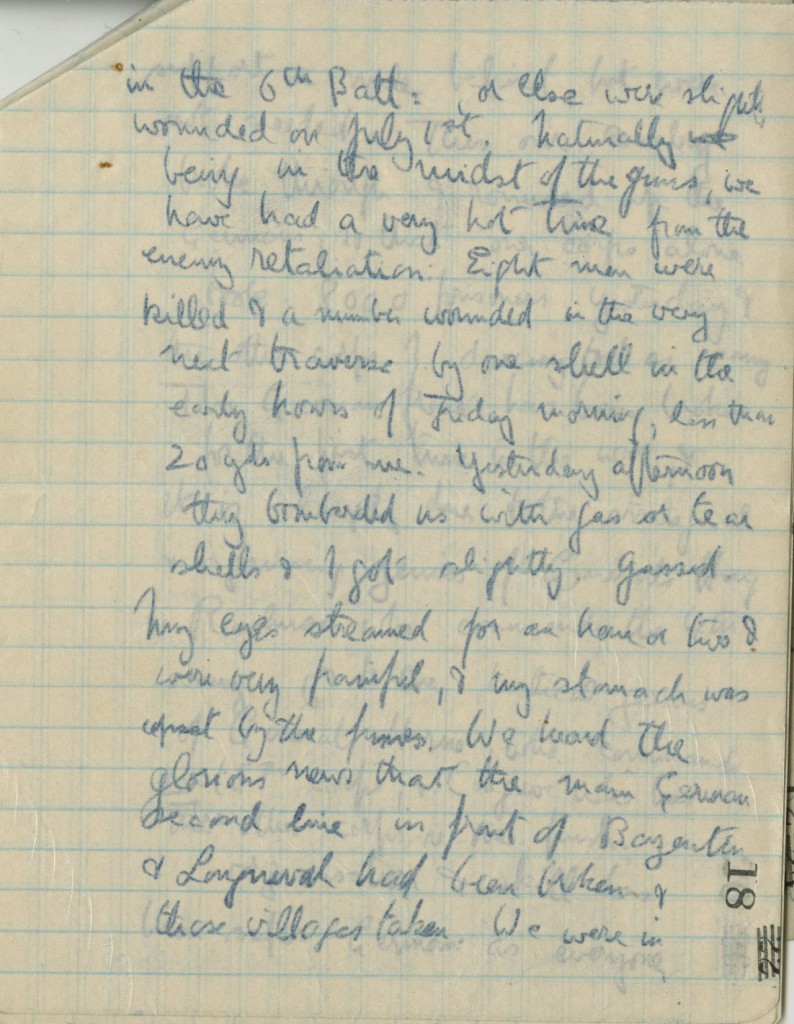 in the 6th Batt: , or else were slightly
wounded on July 1st. Naturally
being in the midst of the guns, we
have had a very hot time from the
enemy retaliation. Eight men were
killed & a number wounded in the very
next traverse by one shell in the
early hours of Friday morning, less than
20 yds from me. Yesterday afternoon
they bombarded us with gas or tear
shells & I got slightly gassed
My eyes streamed for an hour or two &
were very painful, & my stomach was
upset by the fumes. We heard the
glorious news that the main German
second line in front of Bazentin
& Longueval had been broken &
those villages taken We were in
18